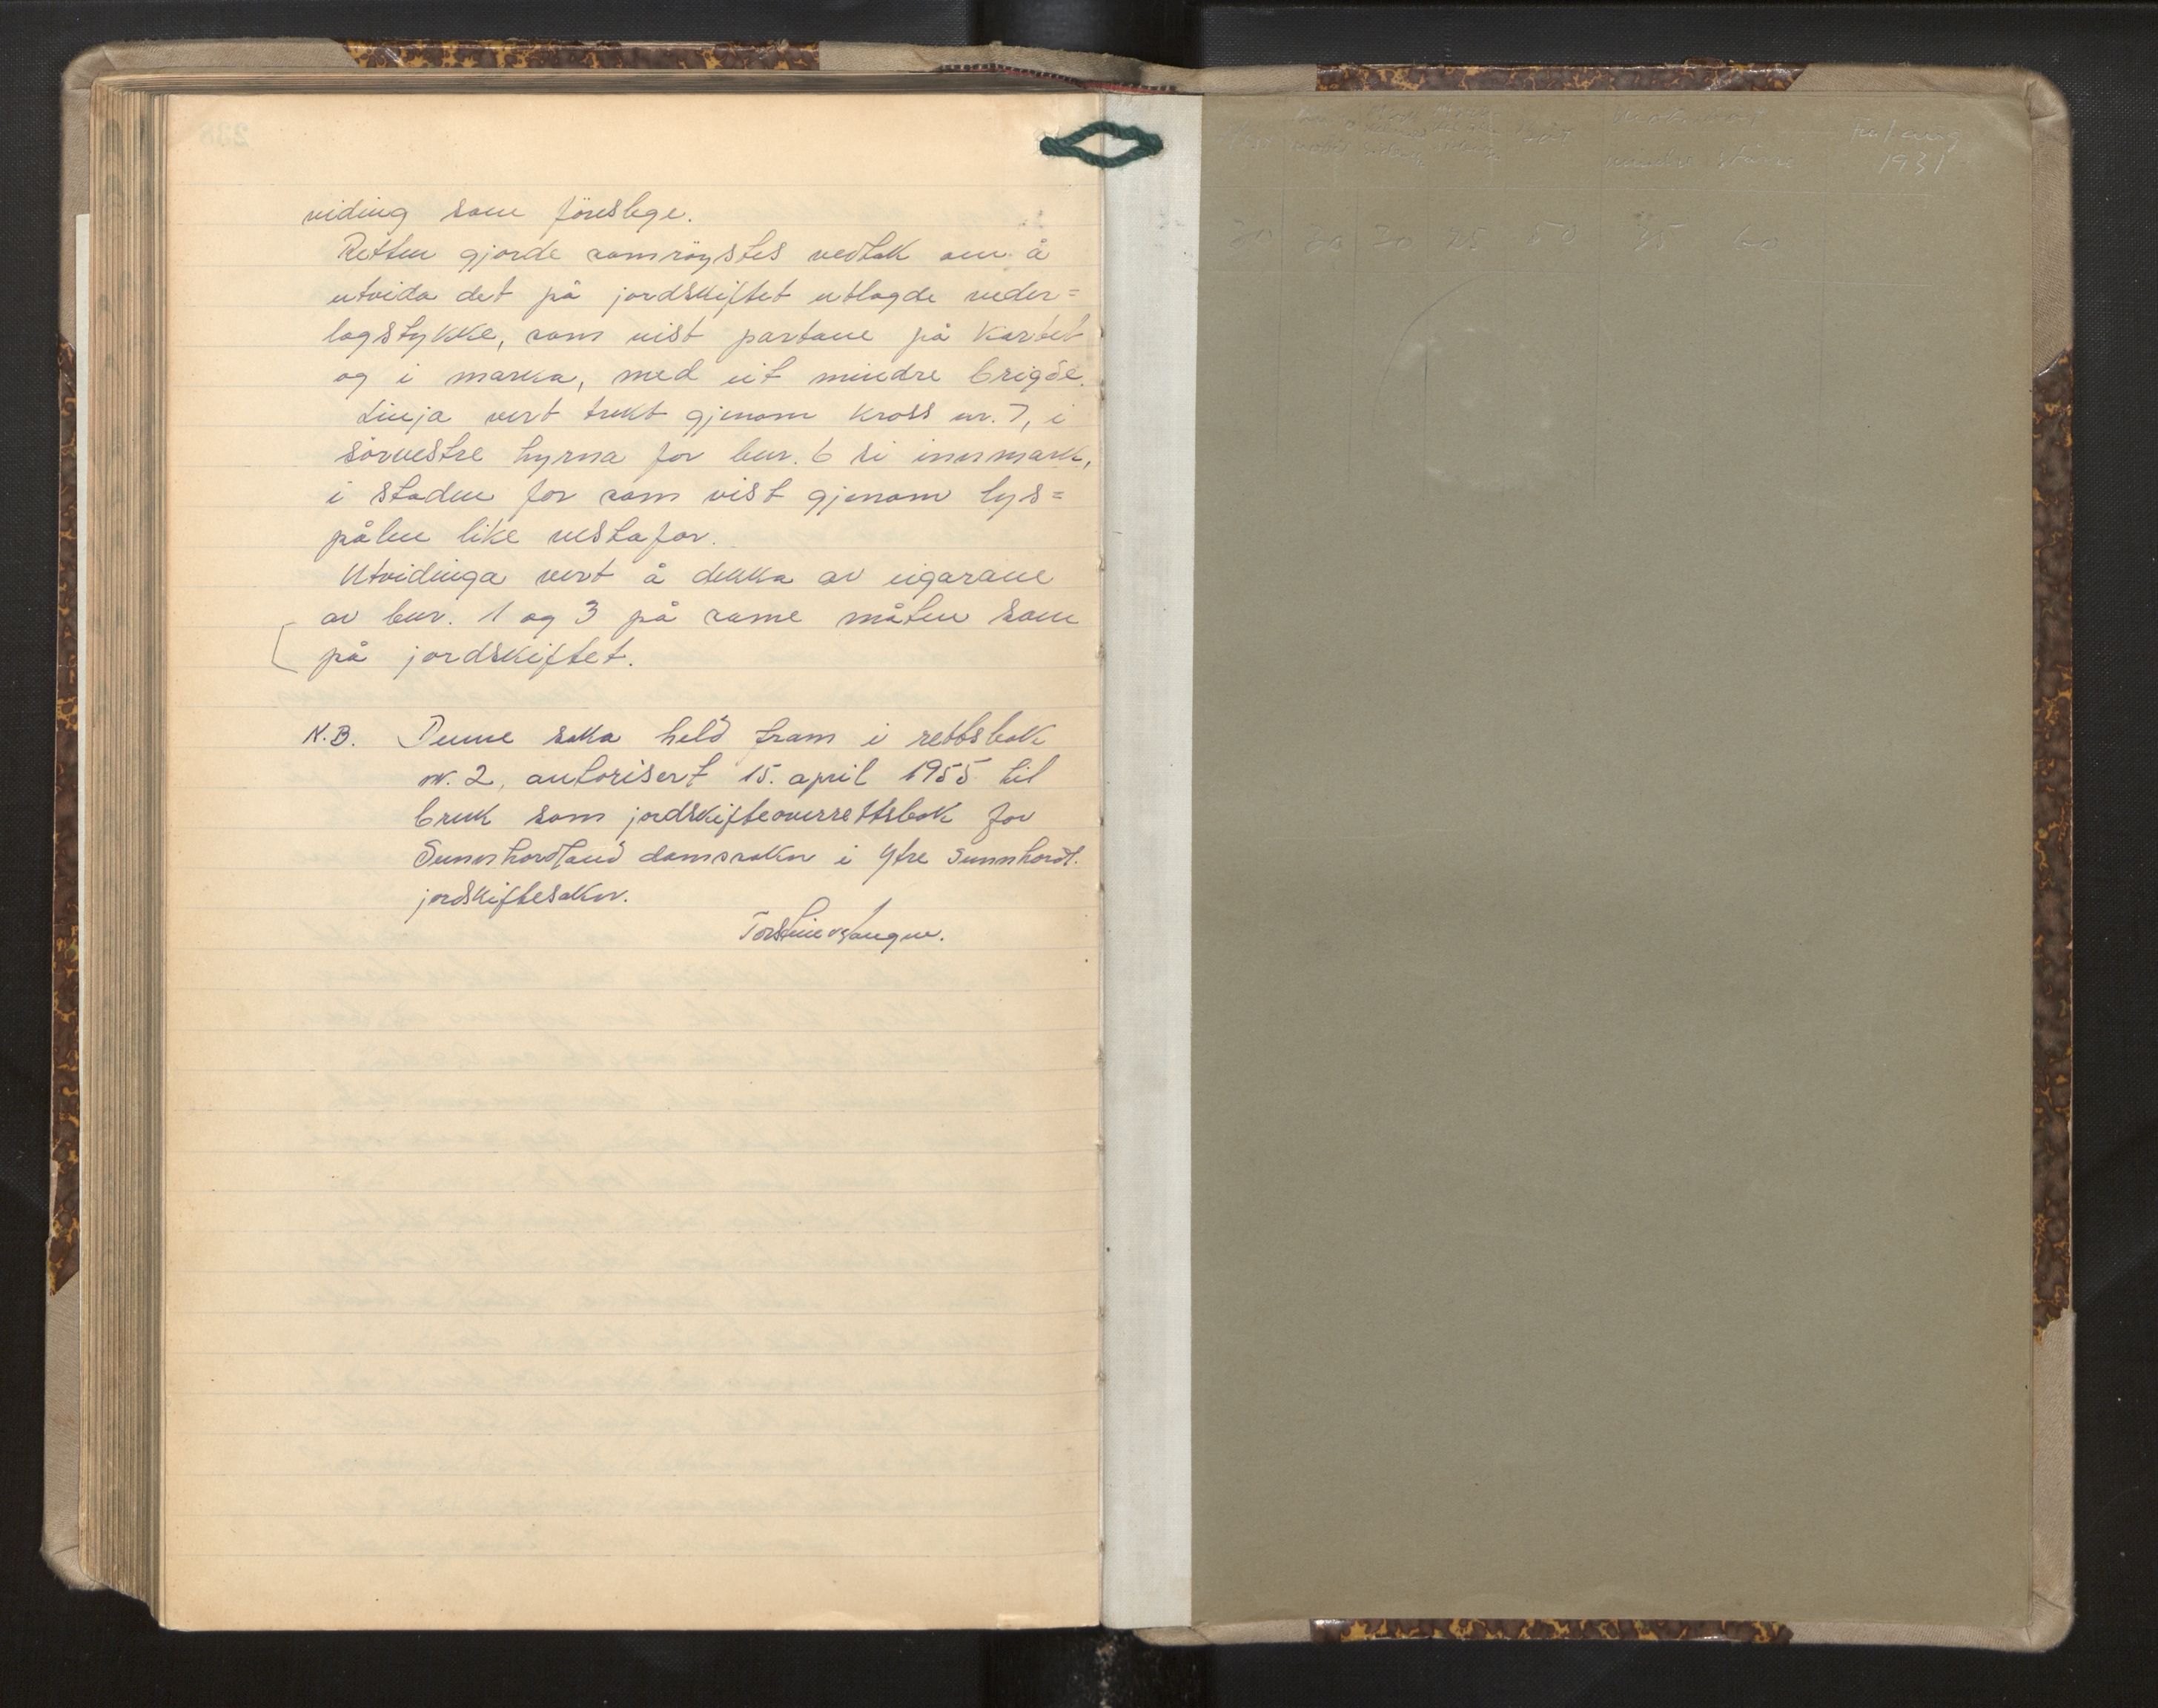 viding som föreslege.
Retten gjorde samröystes vedtak om å
utvida det på jordskiftet utlagde veder=
lagstykke, som vist partane på kartet
og i marka, med eit mindre brigde.
Linja vert trekt gjenom kross nr. 7, i
sörvestre hyrna for bnr. 6 si innmark,
i staden for som vist gjenom lys=
pålen like vestafor.
Utvidinga vert å dekka av eigarane
av bnr. 1 og 3 på same måten som
på jordskiftet.
N.B. Denne saka held fram i rettsbok
nr. 2, autorisert 15. april 1955 til
bruk som jordskifteoverrettsbok for
Sunnhordland domssokn i Ytre Sunnhordl.
jordskiftesokn.
1931
20 20 20 25 50 45 60